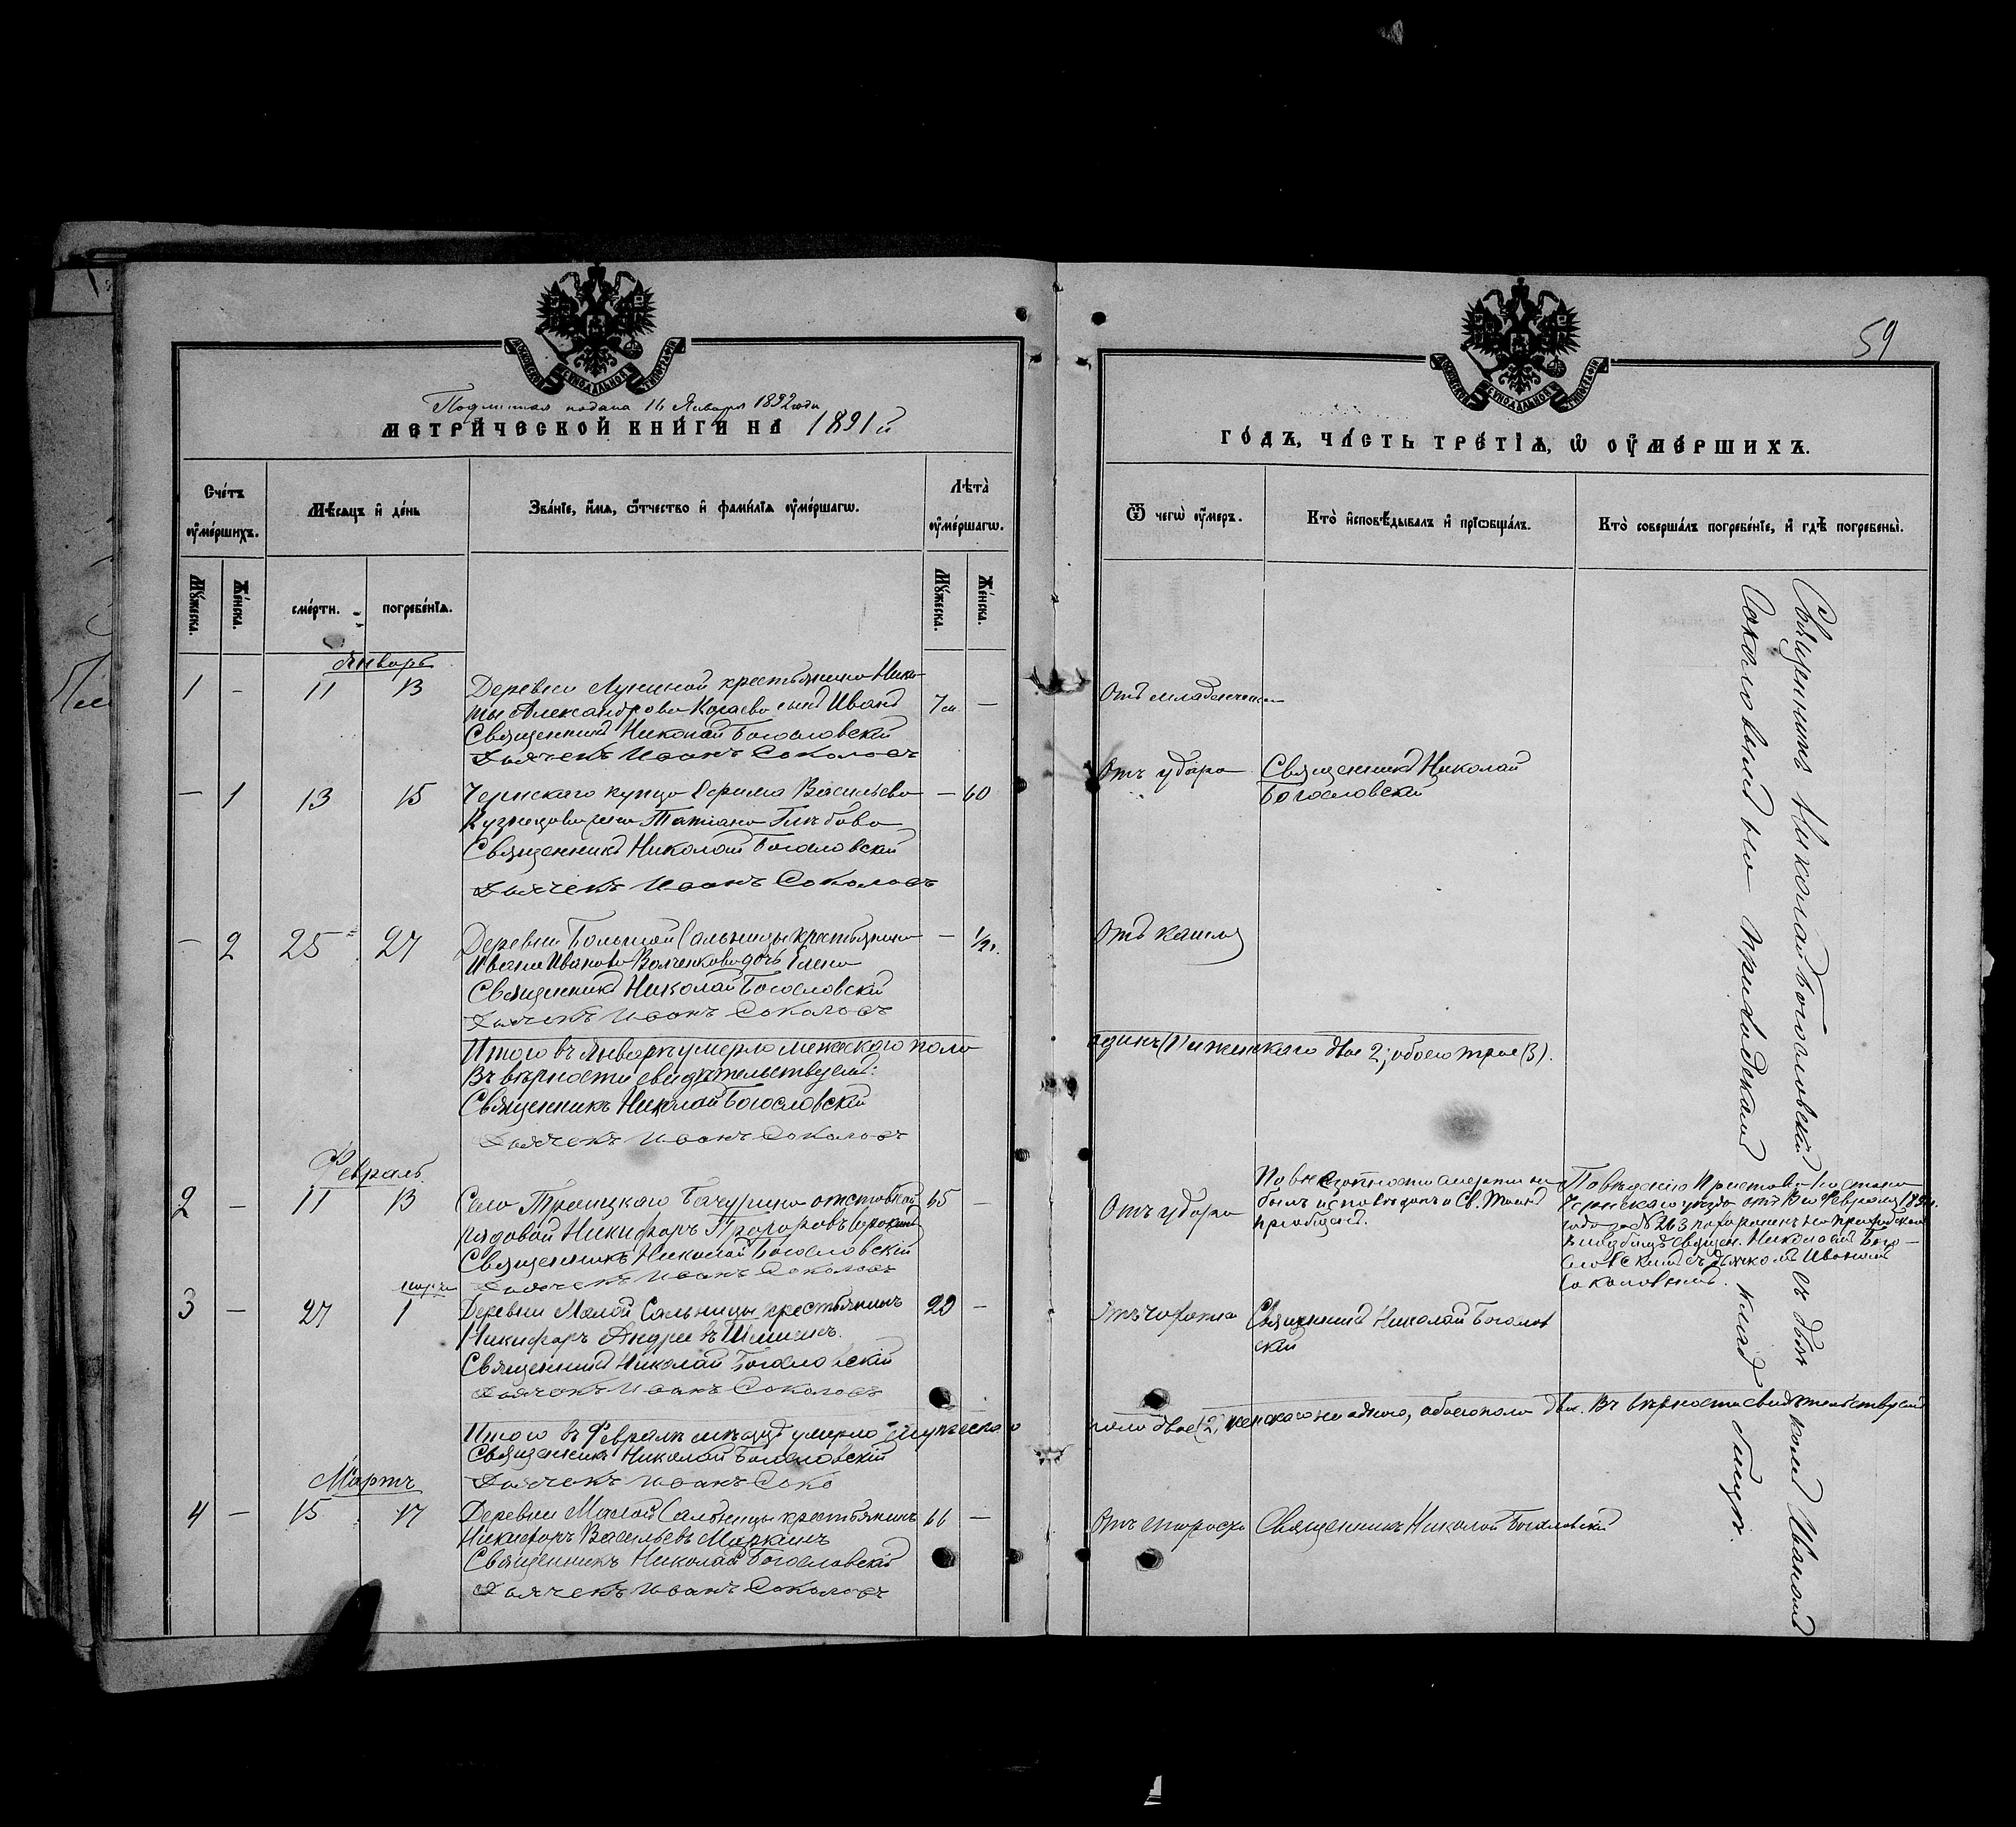 59
МОСКОВСКОЙ СѴНОДАЛЬНОЙ ТИПОГРАФІИ
МОСКОВСКОЙ СѴНОДАЛЬНОЙ ТИПОГРАФІИ
Подлинная подана 16 Января 1892 года
МЕТРИЧЕСКОЙ КНИГИ НА 1891й
ГОДЪ, ЧАСТЬ ТРЕТІѦ, Ѡ ОУМЕРШИХЪ.
Счетъ оумершихъ.
Мѣсяцъ и день
Званіе, имя, ѿчество и фамилія оумершагѡ.
Лѣта оумершагѡ.
Ѿ чегѡ оумеръ.
Кто исповѣдывалъ и пріѡбщалъ.
Кто совершалъ погребеніе, и гдѣ погребены.
Мужеска.
Женска.
смерти.
погребенія.
Мужеска.
Женска.
Январь
1 - 11 13 Деревни Лукиной крестьянина Ники-
ты Александрова сынъ Иванъ 7 -
Священникъ Николай Богословскій
Дьячекъ Иванъ Соколовъ
Отъ младенческой
- 1 13 15 Чернскаго купца Ефима Васильева - 60
Кузнецова жена Татіана Глѣбова
Священникъ Николай Богословскій
Дьячекъ Иванъ Соколовъ
Отъ удара
Священникъ Николай
Богословскій
- 2 25 27 Деревни Большой Сальницы крестьянина - 1/2
Ивана Иванова дочь Елена
Священникъ Николай Богословскій
Дьячекъ Иванъ Соколовъ
Отъ кашля
Итого въ Январѣ умерло мужескаго пола
одинъ (1) и женскаго двѣ 2; обоего трое (3).
Въ вѣрности свидѣтельствуемъ:
Священникъ Николай Богословскій
Дьячекъ Иванъ Соколовъ
Февраль
2 - 11 13 Села Троицкаго Бачурина отставной 65 -
рядовой Никифоръ Григорьевъ
Священникъ Николай Богословскій
Дьячекъ Иванъ Соколовъ
Отъ удара
По внезапности смерти не
былъ исповѣданъ и Св. Таинъ
пріобщенъ.
По вѣденію Пристава стана
Чернскаго уѣзда отъ 13 го Февраля 1891
года за № 263 похороненъ на приходскомъ
кладбищѣ священ. Николаемъ Бого-
словскимъ съ дьячкомъ Иваномъ
Соколовымъ.
марта
3 - 27 1 Деревни Малой Сальницы крестьянинъ 20 -
Никифоръ Андреевъ
Священникъ Николай Богословскій
Дьячекъ Иванъ Соколовъ
Священникъ Николай Богослов
скій
Итого въ Февралѣ мѣсяцѣ умерло мужескаго
пола двое (2), женскаго ни одного, обоего пола двое. Въ вѣрности свидѣтельствуемъ
Священникъ Николай Богословскій
Дьячекъ Иванъ Соко
Мартъ
4 - 15 17 Деревни Малой Сальницы крестьянинъ 66 -
Никифоръ Васильевъ Миркинъ
Священникъ Николай Богословскій
Дьячекъ Иванъ Соколовъ
Отъ старости
Священникъ Николай Богословскій
Священникъ Николай Богословскій съ дьячкомъ Иваномъ
Соколовымъ на приходскомъ кладбищѣ.